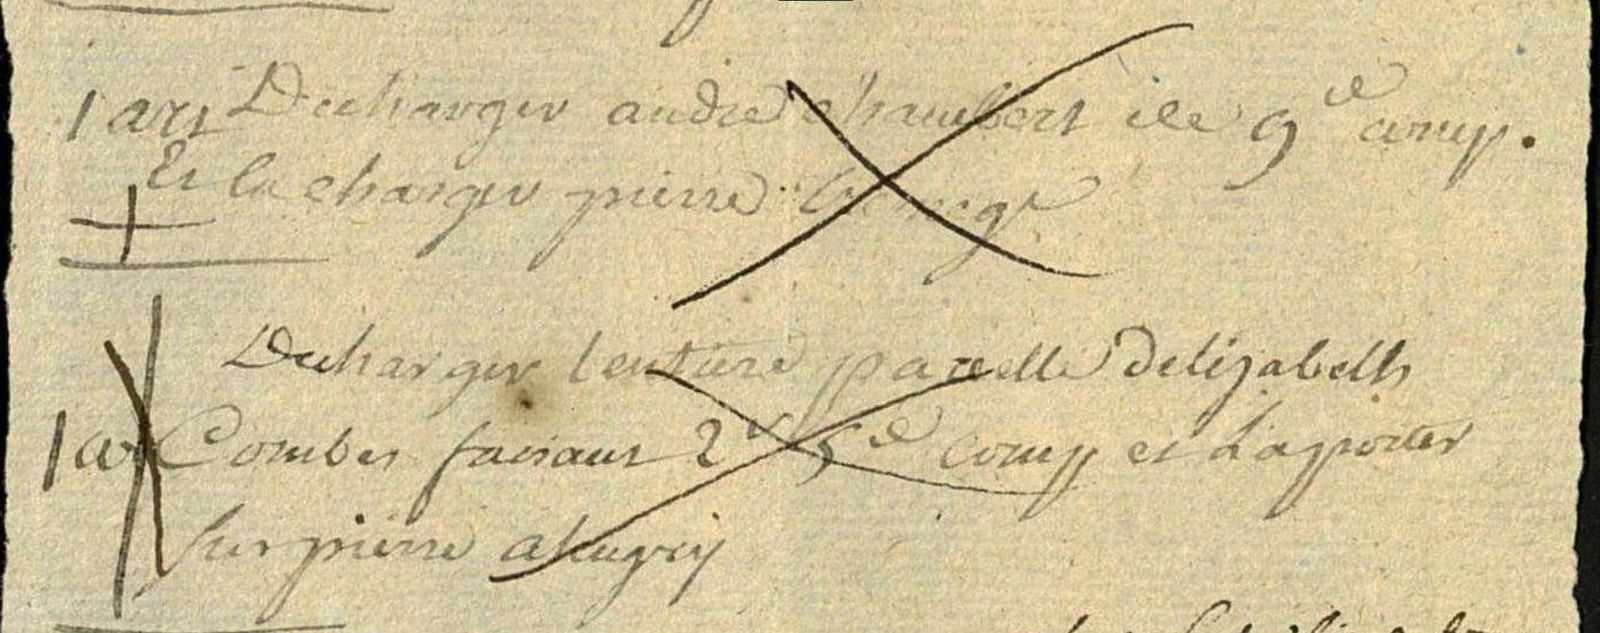 1 art Decharger andre chambert ile 9 d comp.
Et la charger pierre
Decharger lentiere parcelle delizabeth
1 ar Combes faisant 2 s 5 d comp et Lapporter
sur pierre